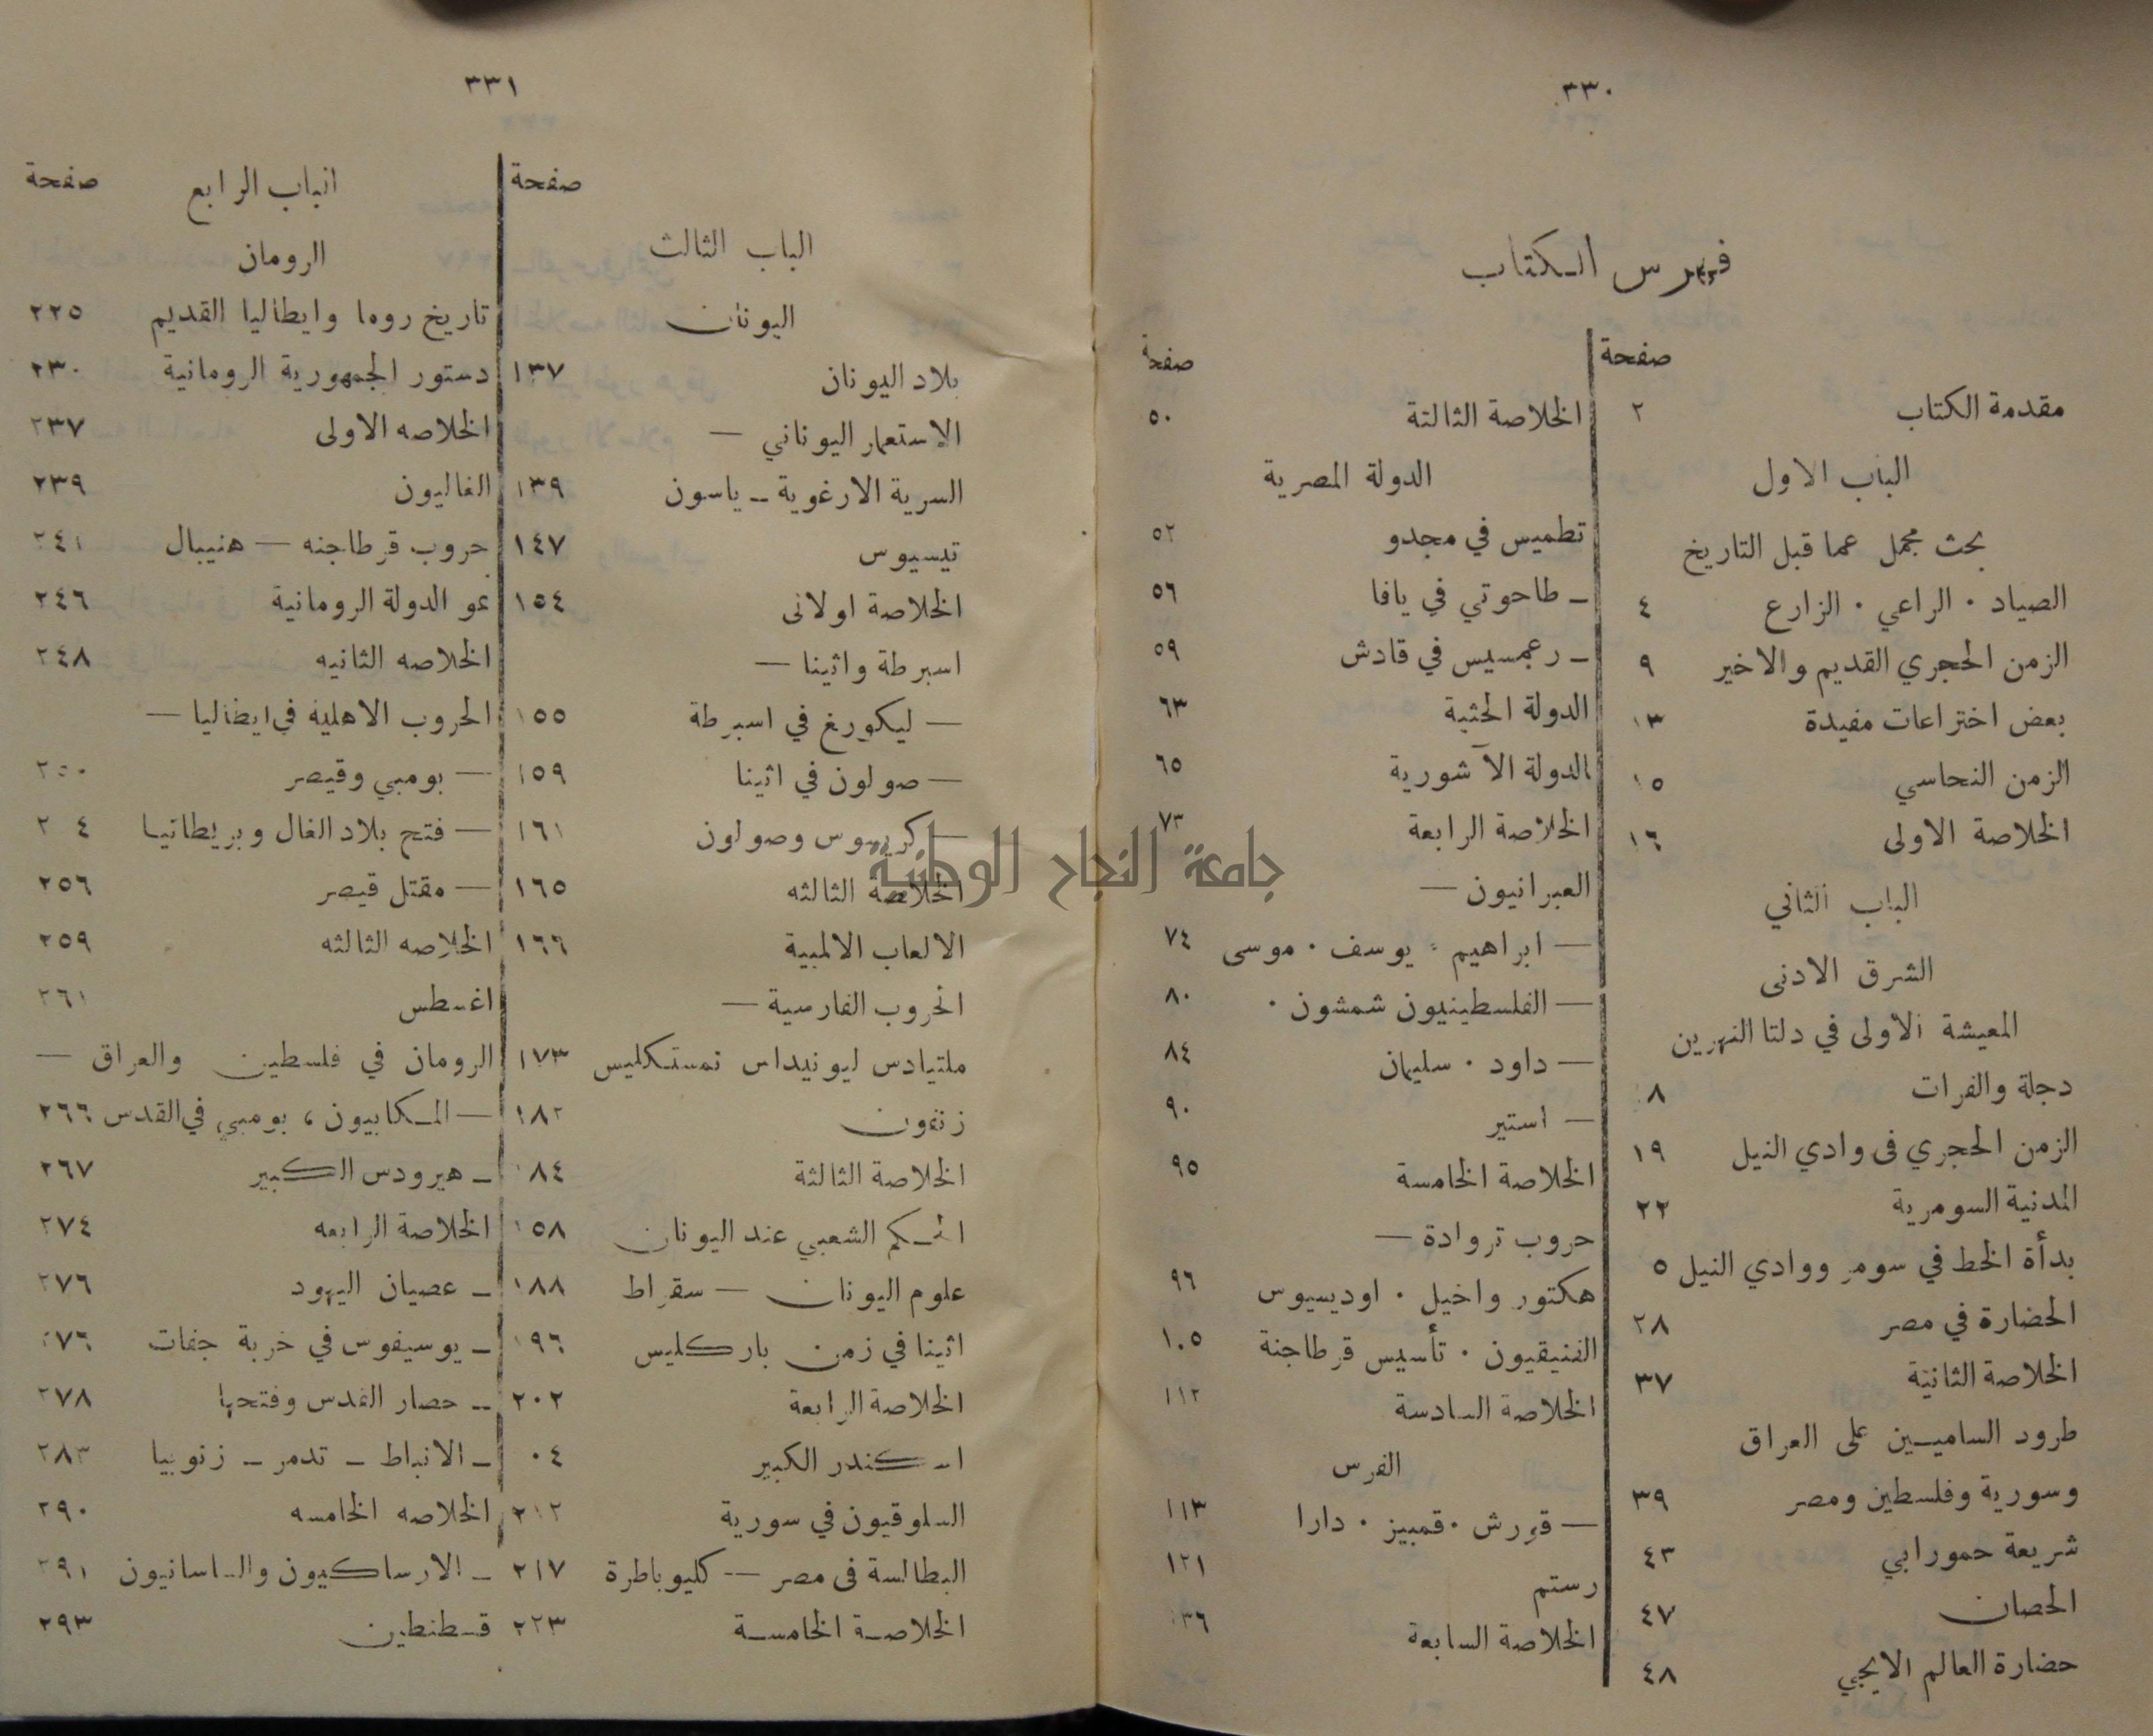 ٣٣٠
فهرس الكتاب
صفحة
مقدمة الكتاب ٢
الباب الاول
بحث مجمل عما قبل التاريخ
الصياد . الراعي . الزارع ٤
الزمن الحجري القديم والاخير ٩
بعض اختراعات مفيدة ١٣
الزمن النحاسي ١٥
الخلاصة الاولى ١٦
الباب الثاني
الشرق الادنى
المعيشة الاولى في دلتا النهرين
دجلة والفرات ٨
الزمن الحجري في وادي النيل ١٩
المدنية السومرية ٢٢
بدأة الخط في سومر ووادي النيل ٥
الحضارة في مصر ٢٨
الخلاصة الثانية ٣٧
طرود الساميين على العراق
وسورية وفلسطين ومصر ٣٩
شريعة حمورابي ٤٣
الحصان ٤٧
حضارة العالم الايجي ٤٨
صفحة
الخلاصة الثالثة ٥٠
الدولة المصرية
تطميس في مجدو ٥٢
ـ طاحوتي في يافا ٥٦
ـ رعمسيس في قادش ٥٩
الدولة الحثية ٦٣
الدولة الآشورية ٦٥
الخلاصة الرابعة ٧٣
العبرانيون —
— ابراهيم . يوسف . موسى ٧٤
— الفلسطينيون شمشون . ٨٠
— داود . سليمان ٨٤
— استير ٩٠
الخلاصة الخامسة ٩٥
حروب تروادة —
هكتور واخيل . اوديسيوس ٩٦
الفنيقيون . تأسيس قرطاجنة ١٠٥
الخلاصة السادسة ١١٢
الفرس
— قورش . قمبيز . دارا ١١٣
رستم ١٢١
الخلاصة السابعة ١٣٦
٣٣١
صفحة
الباب الثالث
اليونان
بلاد اليونان ١٣٧
الاستعمار اليوناني —
السرية الارغوية ـ ياسون ١٣٩
تيسيوس ١٤٧
الخلاصة اولانى ١٥٤
اسبرطة واثينا —
— ليكورغ في اسبرطة ١٥٥
— صولون في اثينا ١٥٩
— كريسوس وصولون ١٦١
الخلاصة الثالثه ١٦٥
الالعاب الالمبية ١٦٦
الحروب الفارسية —
ملتيادس ليونيداس تمستكليس ١٧٣
زنفون ١٨٢
الخلاصة الثالثة ١٨٤
الحكم الشعبي عند اليونان ١٥٨
علوم اليونان — سقراط ١٨٨
اثينا في زمن باركليس ١٩٦
الخلاصة الرابعة ٢٠٢
اسكندر الكبير ٠٤
السلوقيون في سورية ٢١٢
البطالسة في مصر — كليوباطرة ٢١٧
الخلاصة الخامسة ٢٢٣
الباب الرابع صفحة
الرومان
تاريخ روما وايطاليا القديم ٢٢٥
دستور الجمهورية الرومانية ٢٣٠
الخلاصه الاولى ٢٣٧
الغاليون ٢٣٩
حروب قرطاجنه — هنيبال ٢٤١
نمو الدولة الرومانية ٢٤٦
الخلاصه الثانيه ٢٤٨
الحروب الاهلية في ايطاليا —
— بومبي وقيصر ٢٥٠
— فتح بلاد الغال وبريطانيا ٢ ٤
— مقتل قيصر ٢٥٦
الخلاصه الثالثه ٢٥٩
اغسطس ٢٦١
الرومان في فلسطين والعراق —
— المكابيون ، بومبي في القدس ٢٦٦
ـ هيرودس الكبير ٢٦٧
الخلاصة الرابعه ٢٧٤
ـ عصيان اليهود ٢٧٦
ـ يوسيفوس في خربة جفات ٢٧٦
ـ حصار القدس وفتحها ٢٧٨
ـ الانباط ـ تدمر ـ زنوبيا ٢٨٣
الخلاصه الخامسه ٢٩٠
ـ الارساكيون والساسانيون ٢٩١
قسطنطين ٢٩٣
جامعة النجاح الوطنية